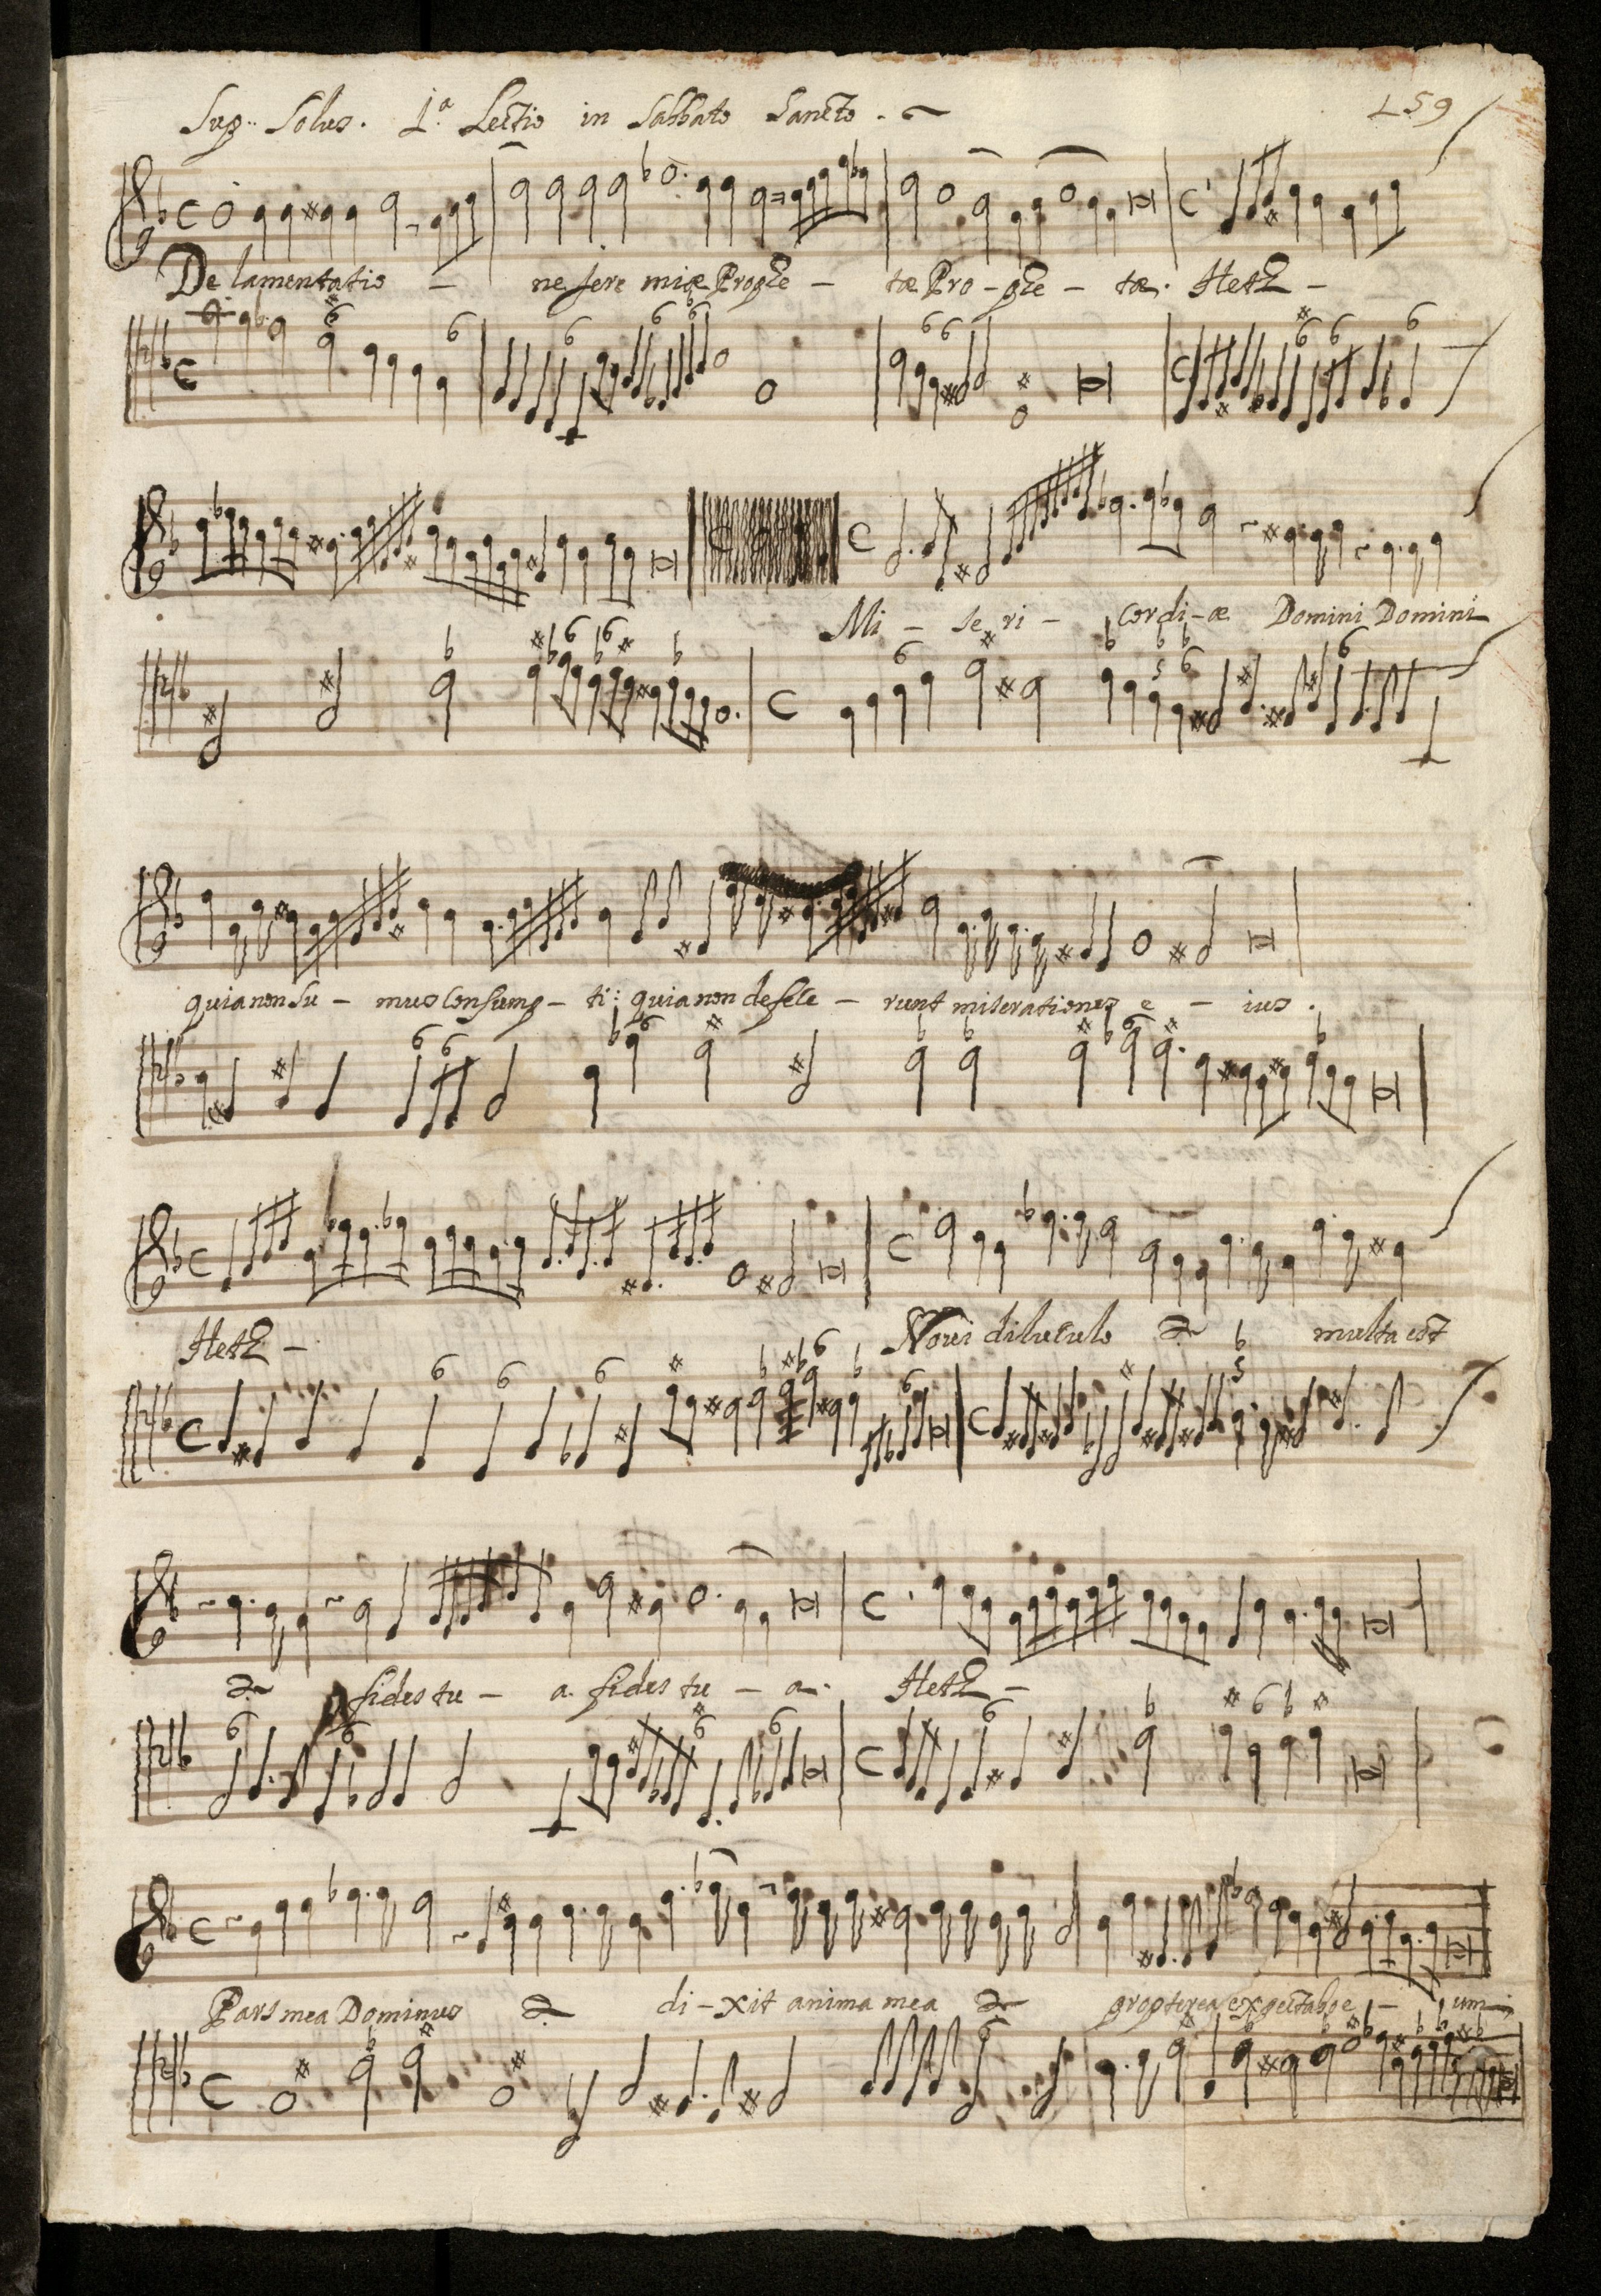 Sup.. Solus. 1.ª Lectio in Sabbato Sancto.
159
De lamentatio - ne Jere miæ Prophe - tæ Pro - phe - tæ. Heth -
Mi - se ri - cordi - æ Domini Domini
quia non su - mus consump - ti: quia non defece - runt miserationes e - ius.
Heth - Novi diluculo multa est
fides tu - a. fides tu - a. Heth -
Pars mea Dominus di - xit anima mea propterea expectabo e - um